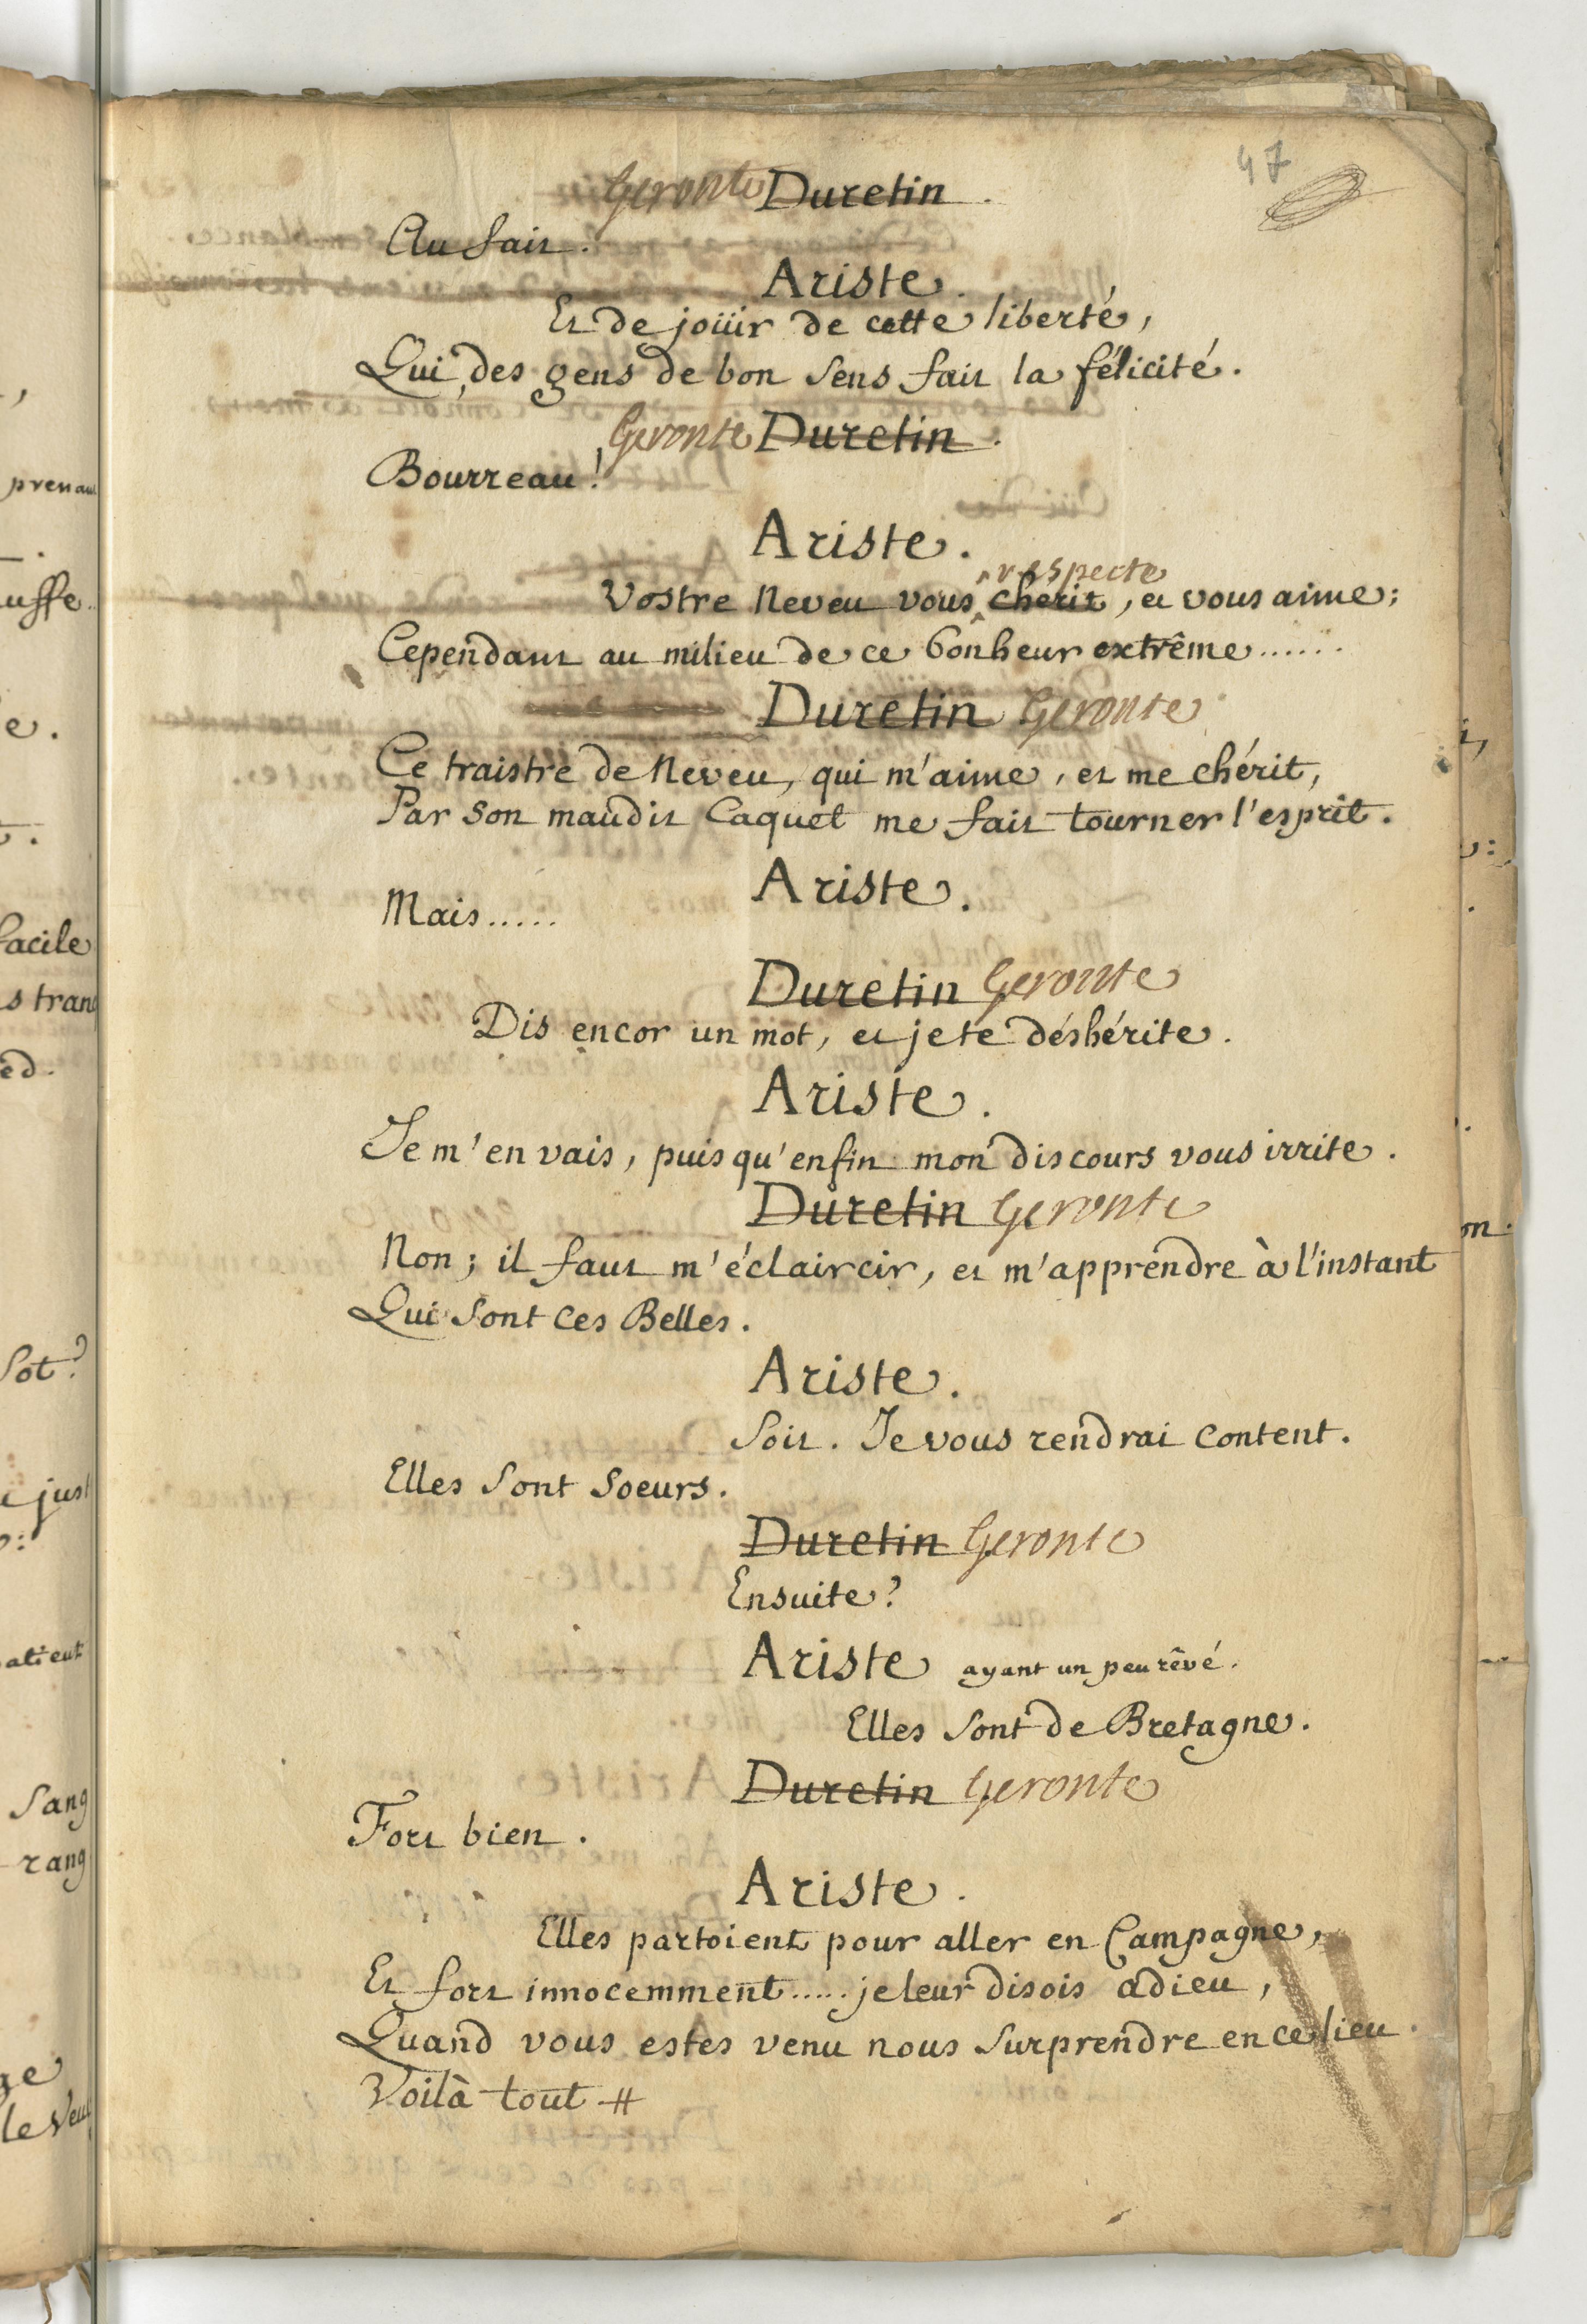 47
Geronte Duretin.
Au fait.
Ariste.
Et de joüir de cette liberté,
Qui des gens de bon sens fait la félicité.
Geronte Duretin.
Bourreau!
Ariste.
respecte
Vostre Neveu vous cherit, et vous aime;
Cependant au milieu de ce bonheur extrême......
Duretin Geronte
Ce traistre de Neveu, qui m'aime, et me chérit,
Par son maudit Caquet me fait tourner l'esprit.
Ariste.
Mais.....
Duretin Geronte
Dis encor un mot, et je te déshérite.
Ariste.
Je m'en vais, puisqu'enfin mon discours vous irrite.
Duretin Geronte
Non; il faut m'éclaircir, et m'apprendre à l'instant
Qui sont ces Belles.
Ariste.
Soit. Je vous rendrai content.
Elles sont soeurs.
Duretin Geronte
Ensuite?
Ariste ayant un peu rêvé.
Elles sont de Bretagne.
Duretin Geronte
Fort bien.
Ariste.
Elles partoient pour aller en Campagne,
Et fort innocemment..... je leur disois adieu,
Quand vous estes venu nous surprendre en ce lieu.
Voilà tout #